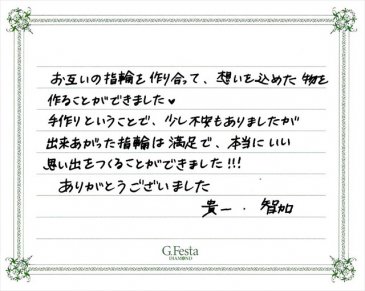 お互いの指輪を作り合って、想いを込めた物を
作ることができました♥
手作りということで、少し不安もありましたが
出来あがった指輪は満足で、本当にいい
思い出をつくることができました!!!
ありがとうございました
貴一・智加
G.Festa
DIAMOND